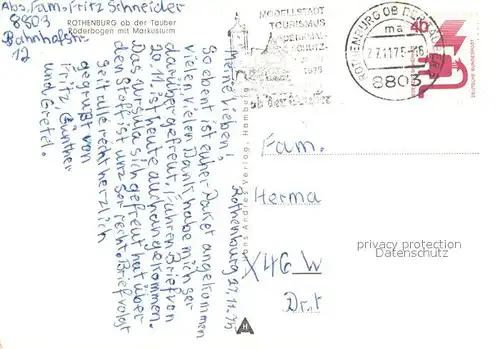 Abs. Fam. Fritz Schneider
8803
Bahnhofstr.
12
ROTHENBURG ob der Tauber
Röderbogen mit Markusturm
MODELLSTADT
TOURISMUS
DENKMAL-
SCHUTZ
1975
ROTHENBURG OB DER TAUBER
ma
27.11.75-16
8803
40
DEUTSCHE BUNDESPOST
Rothenburg 27.11.75
Meine Lieben!
So ebent ist euher Paket angekommen
vielen vielen Dank habe mich ser
darüber gefreut. Fuhren Brief von
20.11. ist heute auch angekommen.
Das Ursula sich gefreut hat über
den Stoff ist uns ser recht. Brief volgt
seit alle recht herzlich
gegrüßt von
Fritz Günther
und Gretel.
Andres Verlag, Hamburg
Fam.
Herma
X46 W
Dr.t
privacy protection
Datenschutz